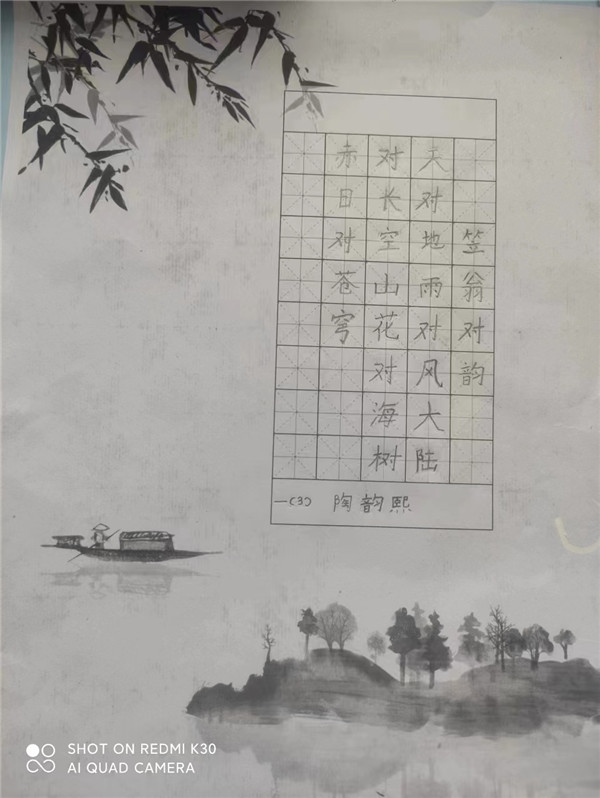 笠翁对韵
天对地雨对风大陆
对长空山花对海树
赤日对苍穹
一(3) 陶韵熙
SHOT ON REDMI K30
AI QUAD CAMERA